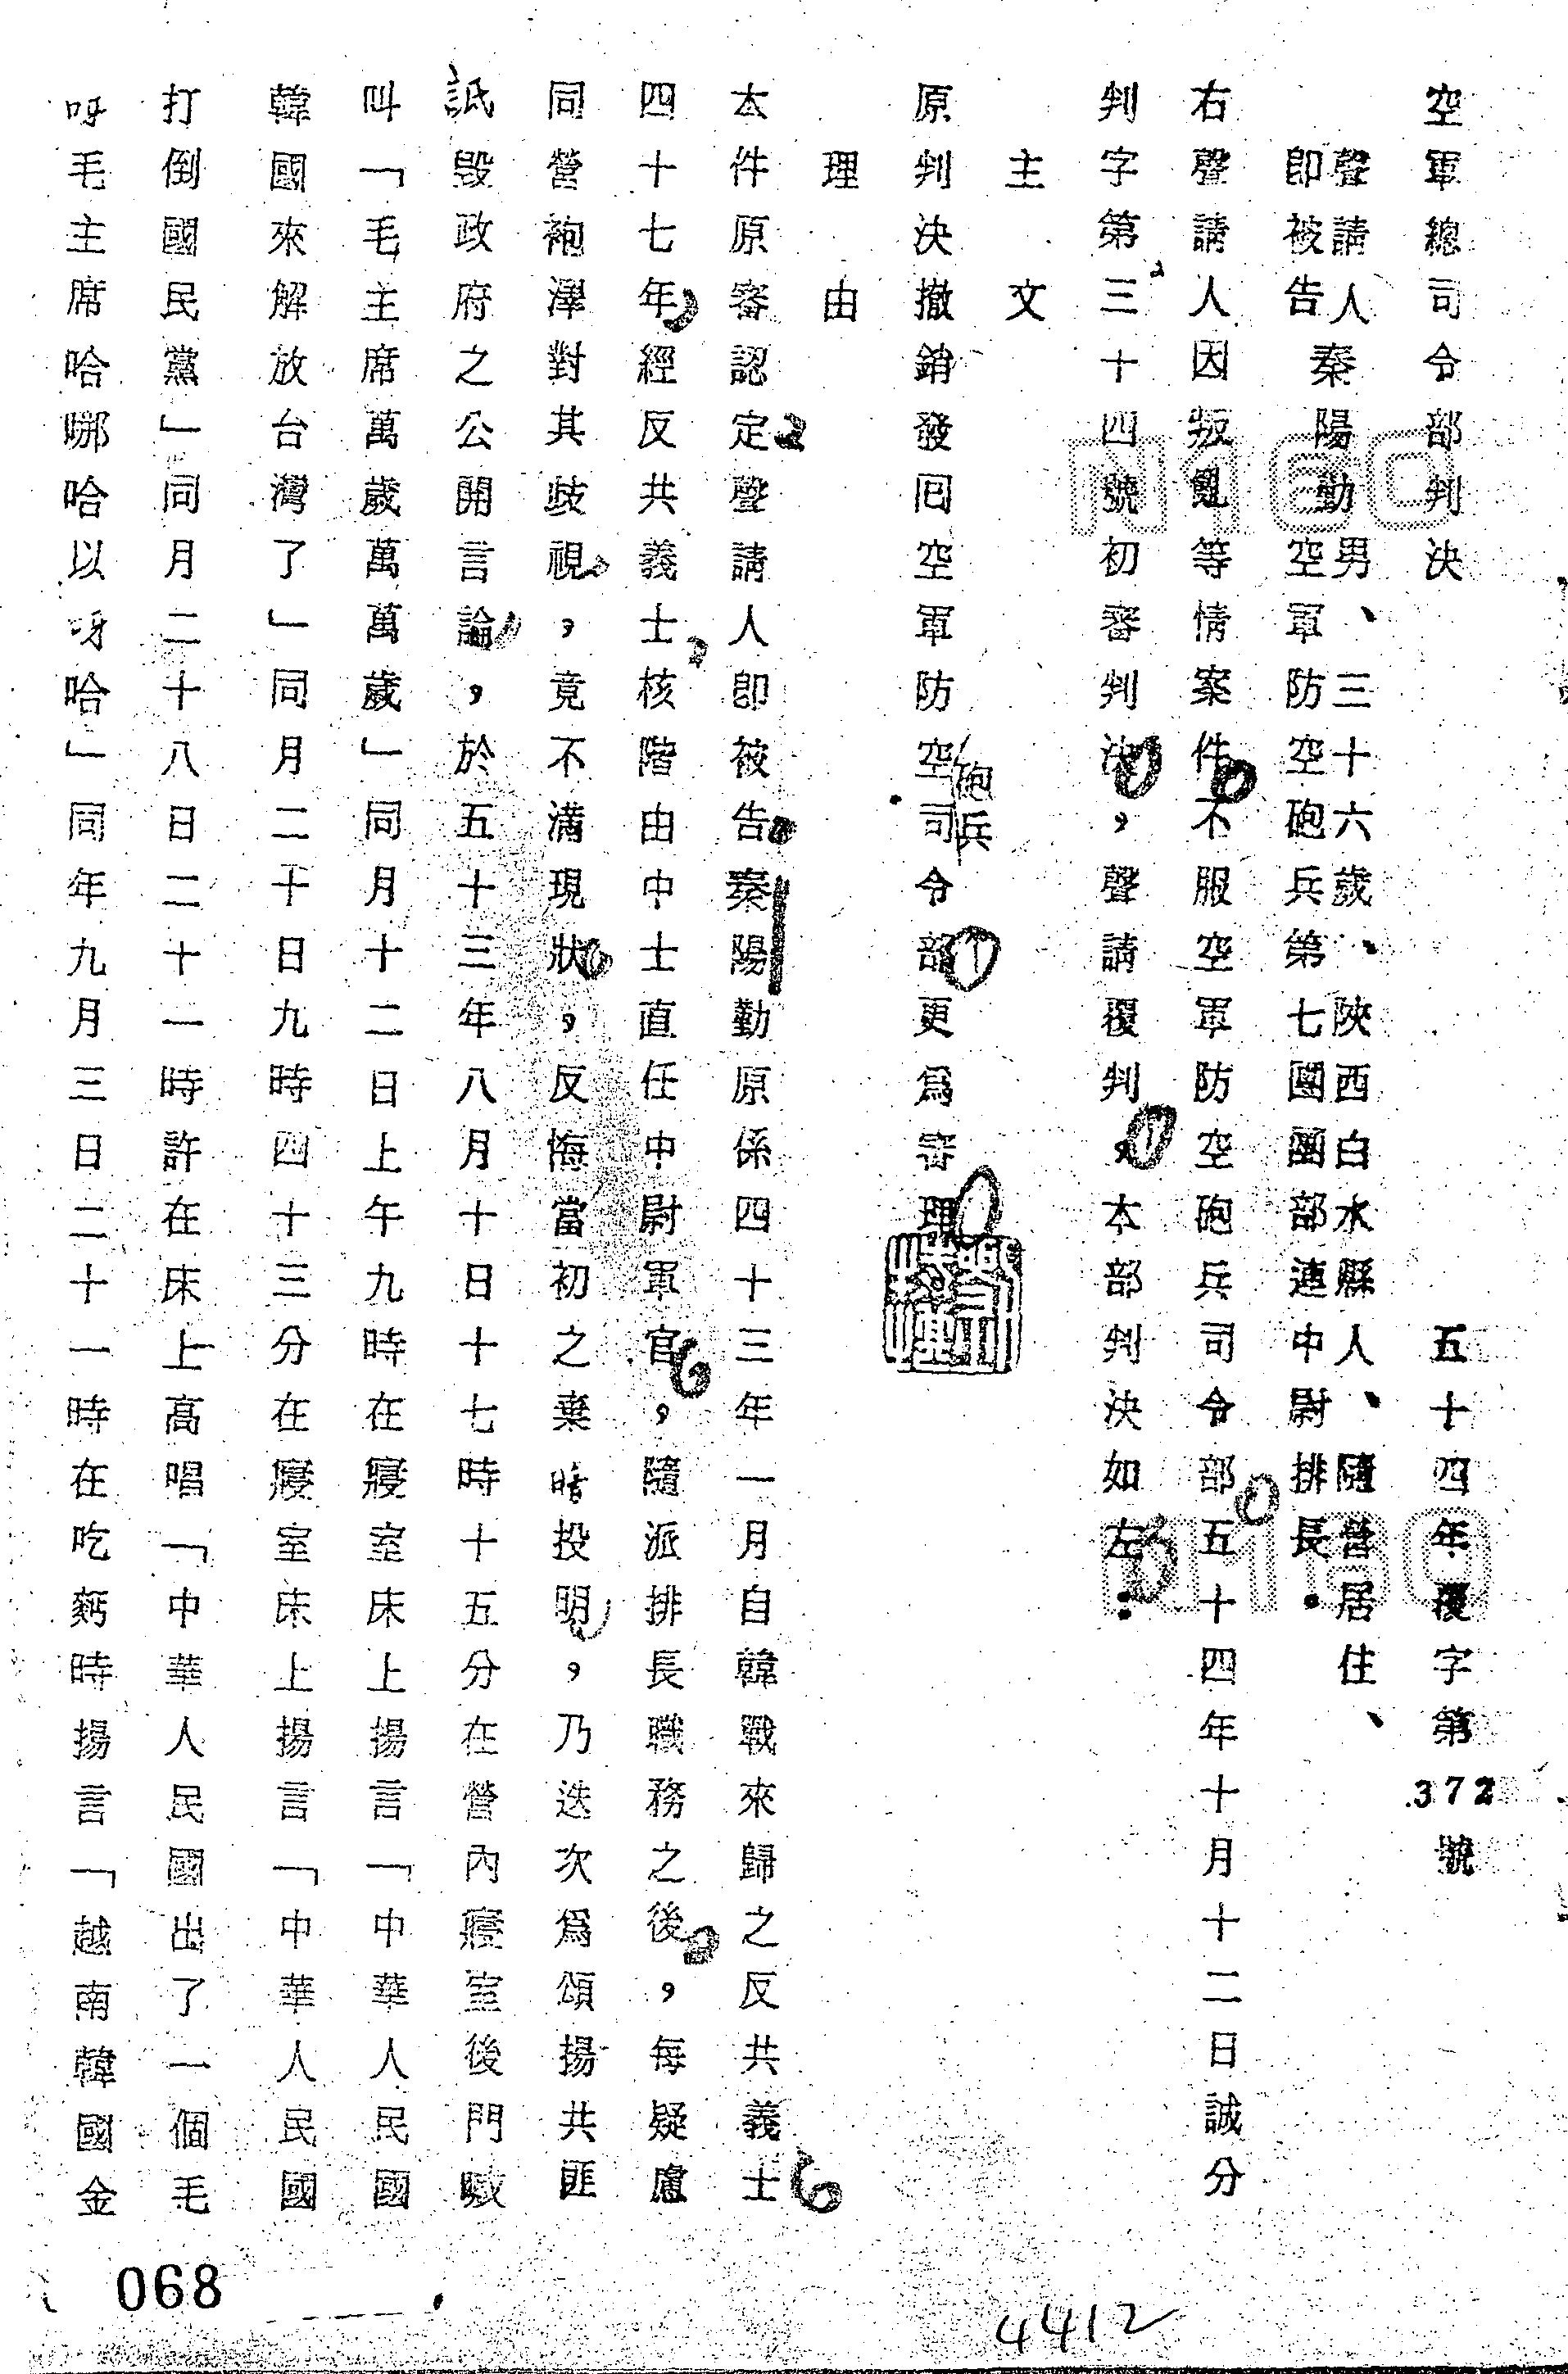 空軍總司令部判決　五十四年覆字第372號
聲請人秦陽勤男、三十六歲、陝西白水縣人、隨營居住、
即被告　空軍防空砲兵第七團團部連中尉排長。
右聲請人因叛亂等情案件不服空軍防空砲兵司令部五十四年十月十二日誠分
判字第三十四號初審判決，聲請覆判，本部判決如左：
主文
原判決撤銷發回空軍防空砲兵司令部更為審理
理由
本件原審認定聲請人即被告秦陽勤原係四十三年一月自韓戰來歸之反共義士
四十七年經反共義士核階由中士直任中尉軍官，隨派排長職務之後，每疑慮
同營袍澤對其歧視，竟不滿現狀，反悔當初之棄暗投明，乃迭次為頌揚共匪
詆毀政府之公開言論，於五十三年八月十日十七時十五分在營內寢室後門喊
叫「毛主席萬歲萬萬歲」同月十二日上午九時在寢室床上揚言「中華人民國
韓國來解放台灣了」同月二十日九時四十三分在寢室床上揚言「中華人民國
打倒國民黨」同月二十八日二十一時許在床上高唱「中華人民國出了一個毛
呀毛主席哈哪哈以呀哈」同年九月三日二十一時在吃麪時揚言「越南韓國金
068
4412